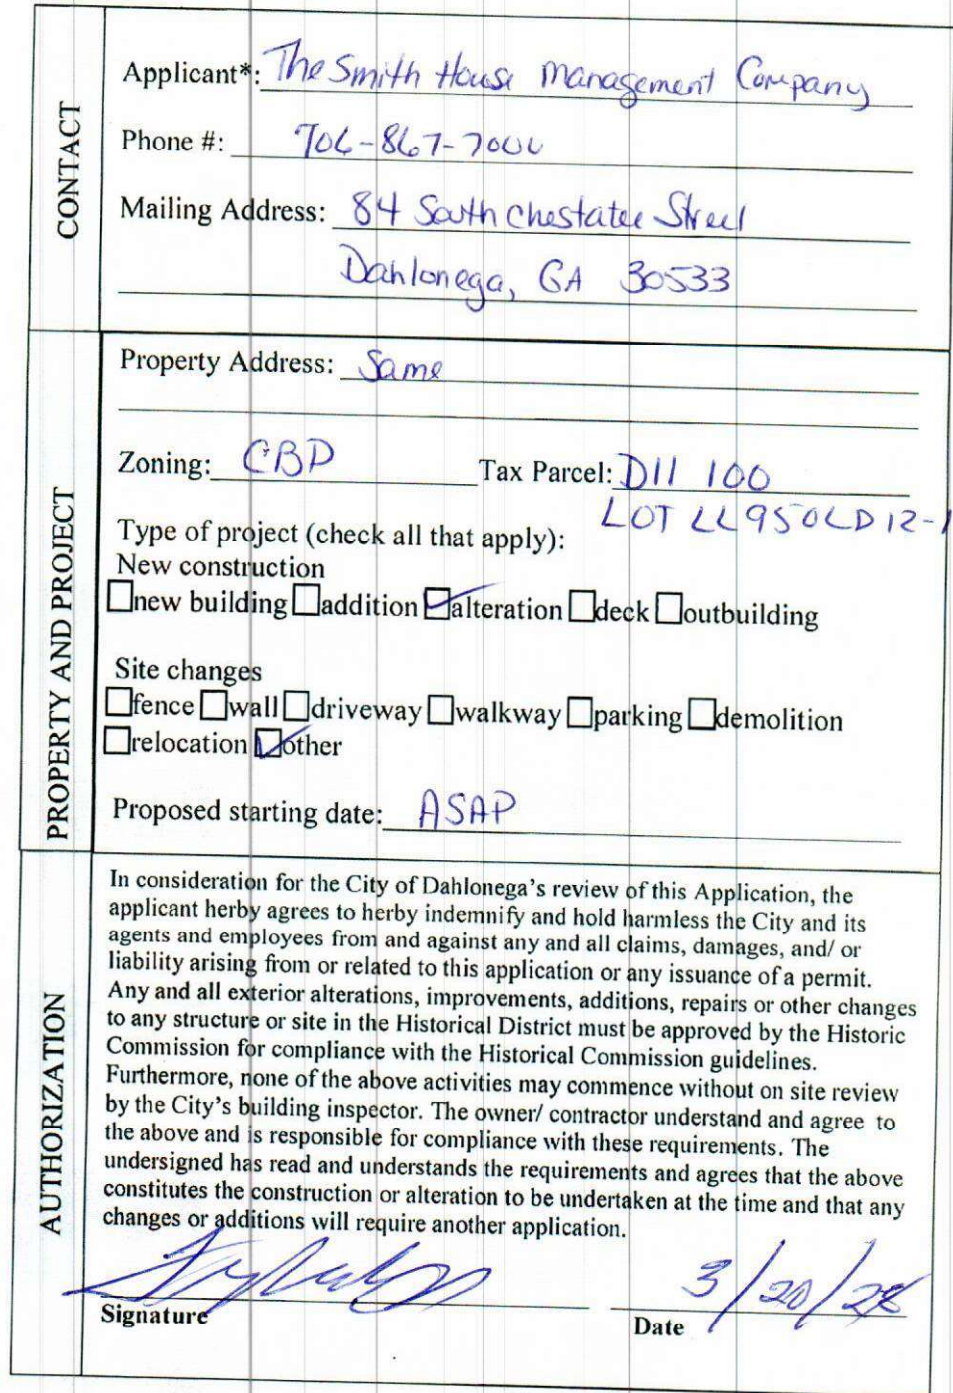 CONTACT
Applicant*: The Smith House Management Company
Phone #: 706-867-7000
Mailing Address: 84 South Chestatee Street
Dahlonega, GA 30533
PROPERTY AND PROJECT
Property Address: Same
Zoning: CBD Tax Parcel: D11 100
LOT LL950LD12-1
Type of project (check all that apply):
New construction
☐new building ☐addition ☑alteration ☐deck ☐outbuilding
Site changes
☐fence ☐wall ☐driveway ☐walkway ☐parking ☐demolition
☐relocation ☑other
Proposed starting date: ASAP
AUTHORIZATION
In consideration for the City of Dahlonega's review of this Application, the
applicant herby agrees to herby indemnify and hold harmless the City and its
agents and employees from and against any and all claims, damages, and/ or
liability arising from or related to this application or any issuance of a permit.
Any and all exterior alterations, improvements, additions, repairs or other changes
to any structure or site in the Historical District must be approved by the Historic
Commission for compliance with the Historical Commission guidelines.
Furthermore, none of the above activities may commence without on site review
by the City's building inspector. The owner/ contractor understand and agree to
the above and is responsible for compliance with these requirements. The
undersigned has read and understands the requirements and agrees that the above
constitutes the construction or alteration to be undertaken at the time and that any
changes or additions will require another application.
3/20/
Signature Date